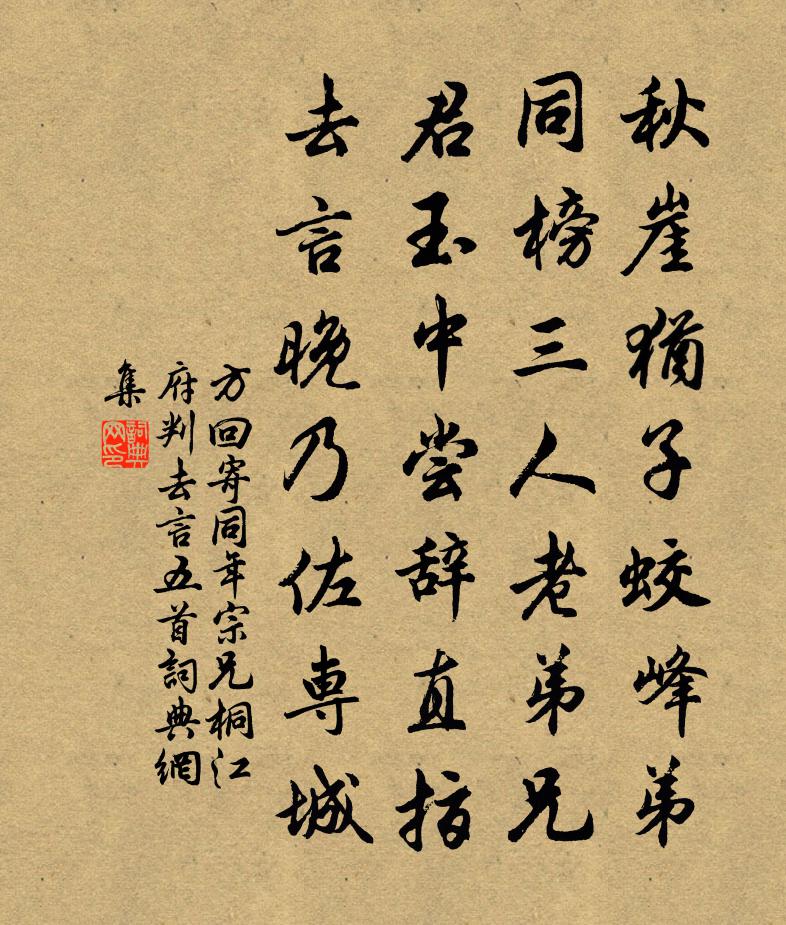 秋崖猶子蛟峰弟
同榜三人老弟兄
君玉中尝辞直指
去言晚乃佐専城
方回寄同年宗兄桐江
府判去言五首詞典網
集
詞典网印